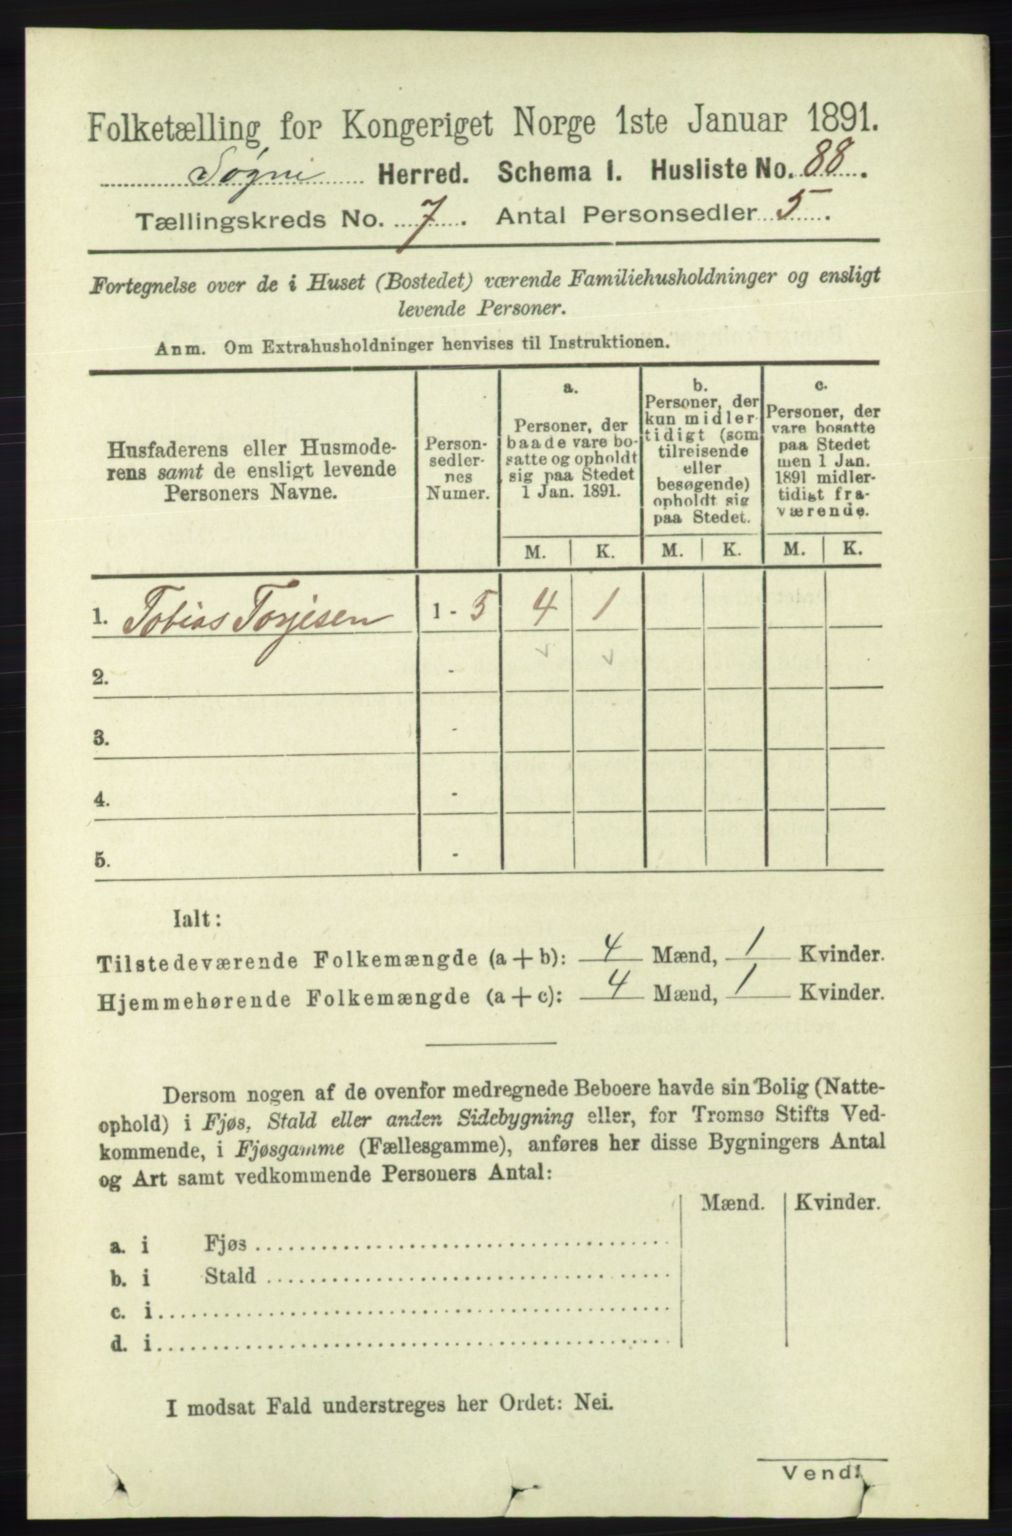 Folketælling for Kongeriget Norge 1ste Januar 1891.
Søgne Herred. Schema I. Husliste No. 88.
Tællingskreds No. 7. Antal Personsedler 5.
Fortegnelse over de i Huset (Bostedet) værende Familiehusholdninger og ensligt
levende Personer.
Anm. Om Extrahusholdninger henvises til Instruktionen.
Husfaderens eller Husmode-
rens samt de ensligt levende
Personers Navne.
Person-
sedler-
nes
Numer.
a.
Personer, der
baade vare bo-
satte og opholdt
sig paa Stedet
1 Jan. 1891.
b.
Personer, der
kun midler-
tidigt (som
tilreisende
eller
besøgende)
opholdt sig
paa Stedet.
c.
Personer, der
vare bosatte
paa Stedet
men 1 Jan.
1891 midler-
tidigt fra-
værende.
M. K. M. K. M. K.
1. Tobias Torjesen 1 - 5 4 1
2. -
3. -
4. -
5. -
Ialt:
Tilstedeværende Folkemængde (a + b): 4 Mænd, 1 Kvinder.
Hjemmehørende Folkemængde (a + c): 4 Mænd, 1 Kvinder.
Dersom nogen af de ovenfor medregnede Beboere havde sin Bolig (Natte-
ophold) i Fjøs, Stald eller anden Sidebygning eller, for Tromsø Stifts Ved-
kommende, i Fjøsgamme (Fællesgamme), anføres her disse Bygningers Antal
og Art samt vedkommende Personers Antal:
Mænd. Kvinder.
a. i Fjøs
b. i Stald
c. i
d. i
I modsat Fald understreges her Ordet: Nei.
Vend!